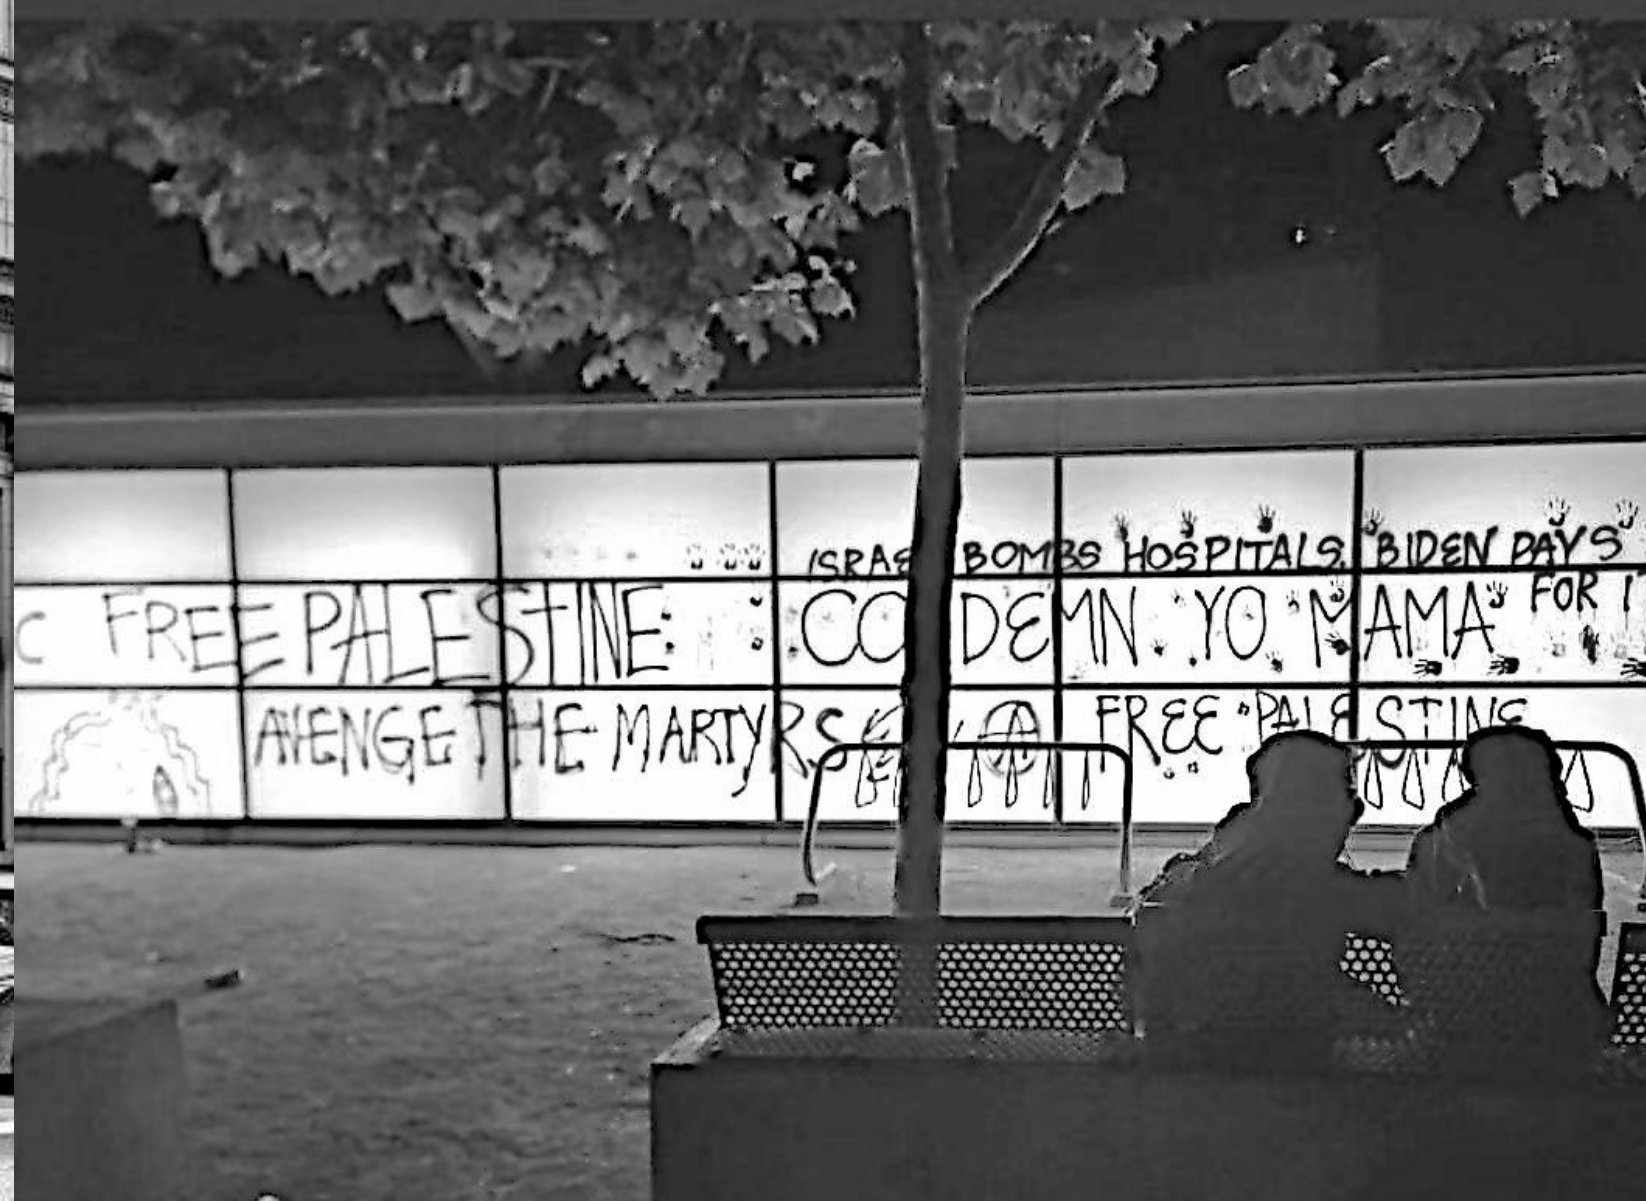 ISRAE BOMBS HOSPITALS. BIDEN PAYS
FOR IT
C FREE PALESTINE
CO DEMN YO MAMA
AVENGE THE MARTYRS
FREE PALESTINE